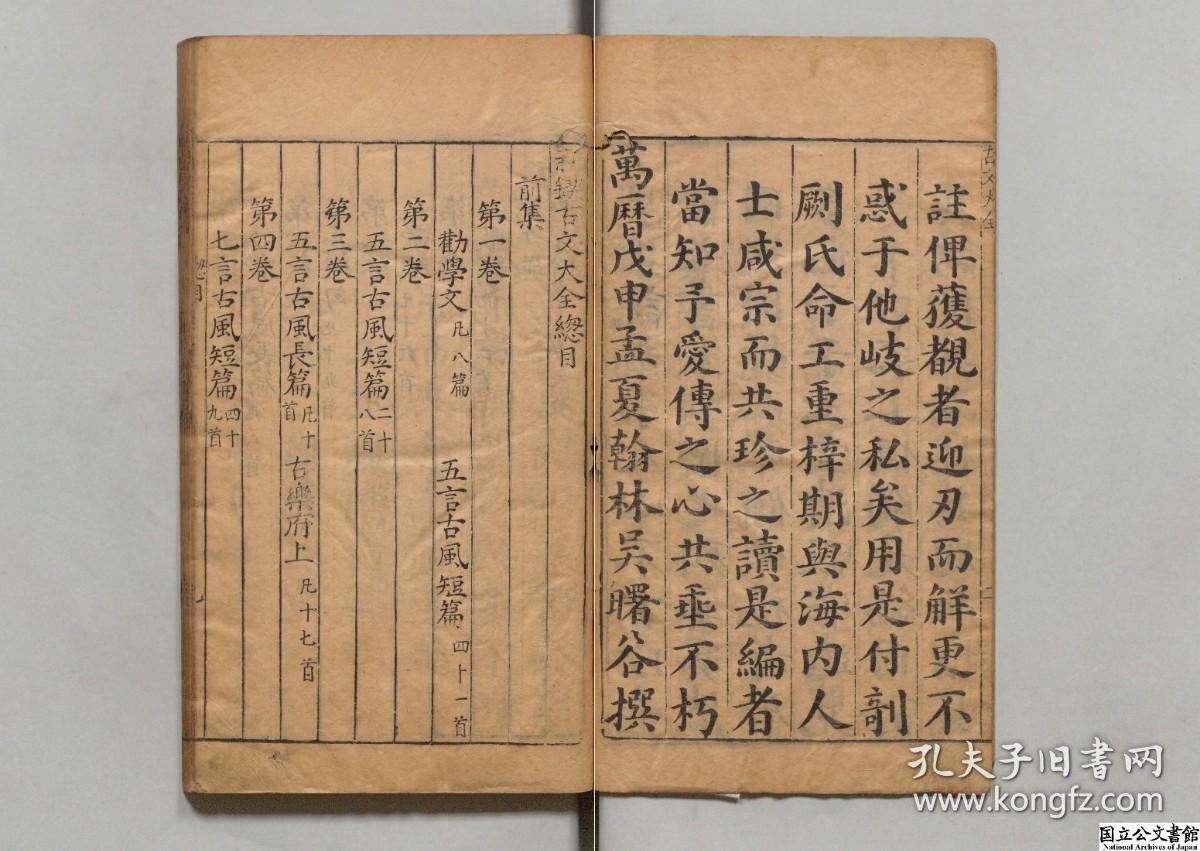 註俾獲覩者迎刃而解更不
惑于他岐之私矣用是付剞
劂氏命工重梓期與海内人
士咸宗而共珍之讀是編者
當知予愛傳之心共垂不朽
萬曆戊申孟夏翰林吴曙谷撰
古文大全
古文大全總目
前集
第一卷
勸學文 凡八篇 五言古風短篇 四十一首
第二卷
五言古風短篇 二十八首
第三卷
五言古風長篇 凡十首 古樂府上 凡十七首
第四卷
七言古風短篇 四十九首
總目
孔夫子旧书网
www.kongfz.com
国立公文書館
National Archives of Japan